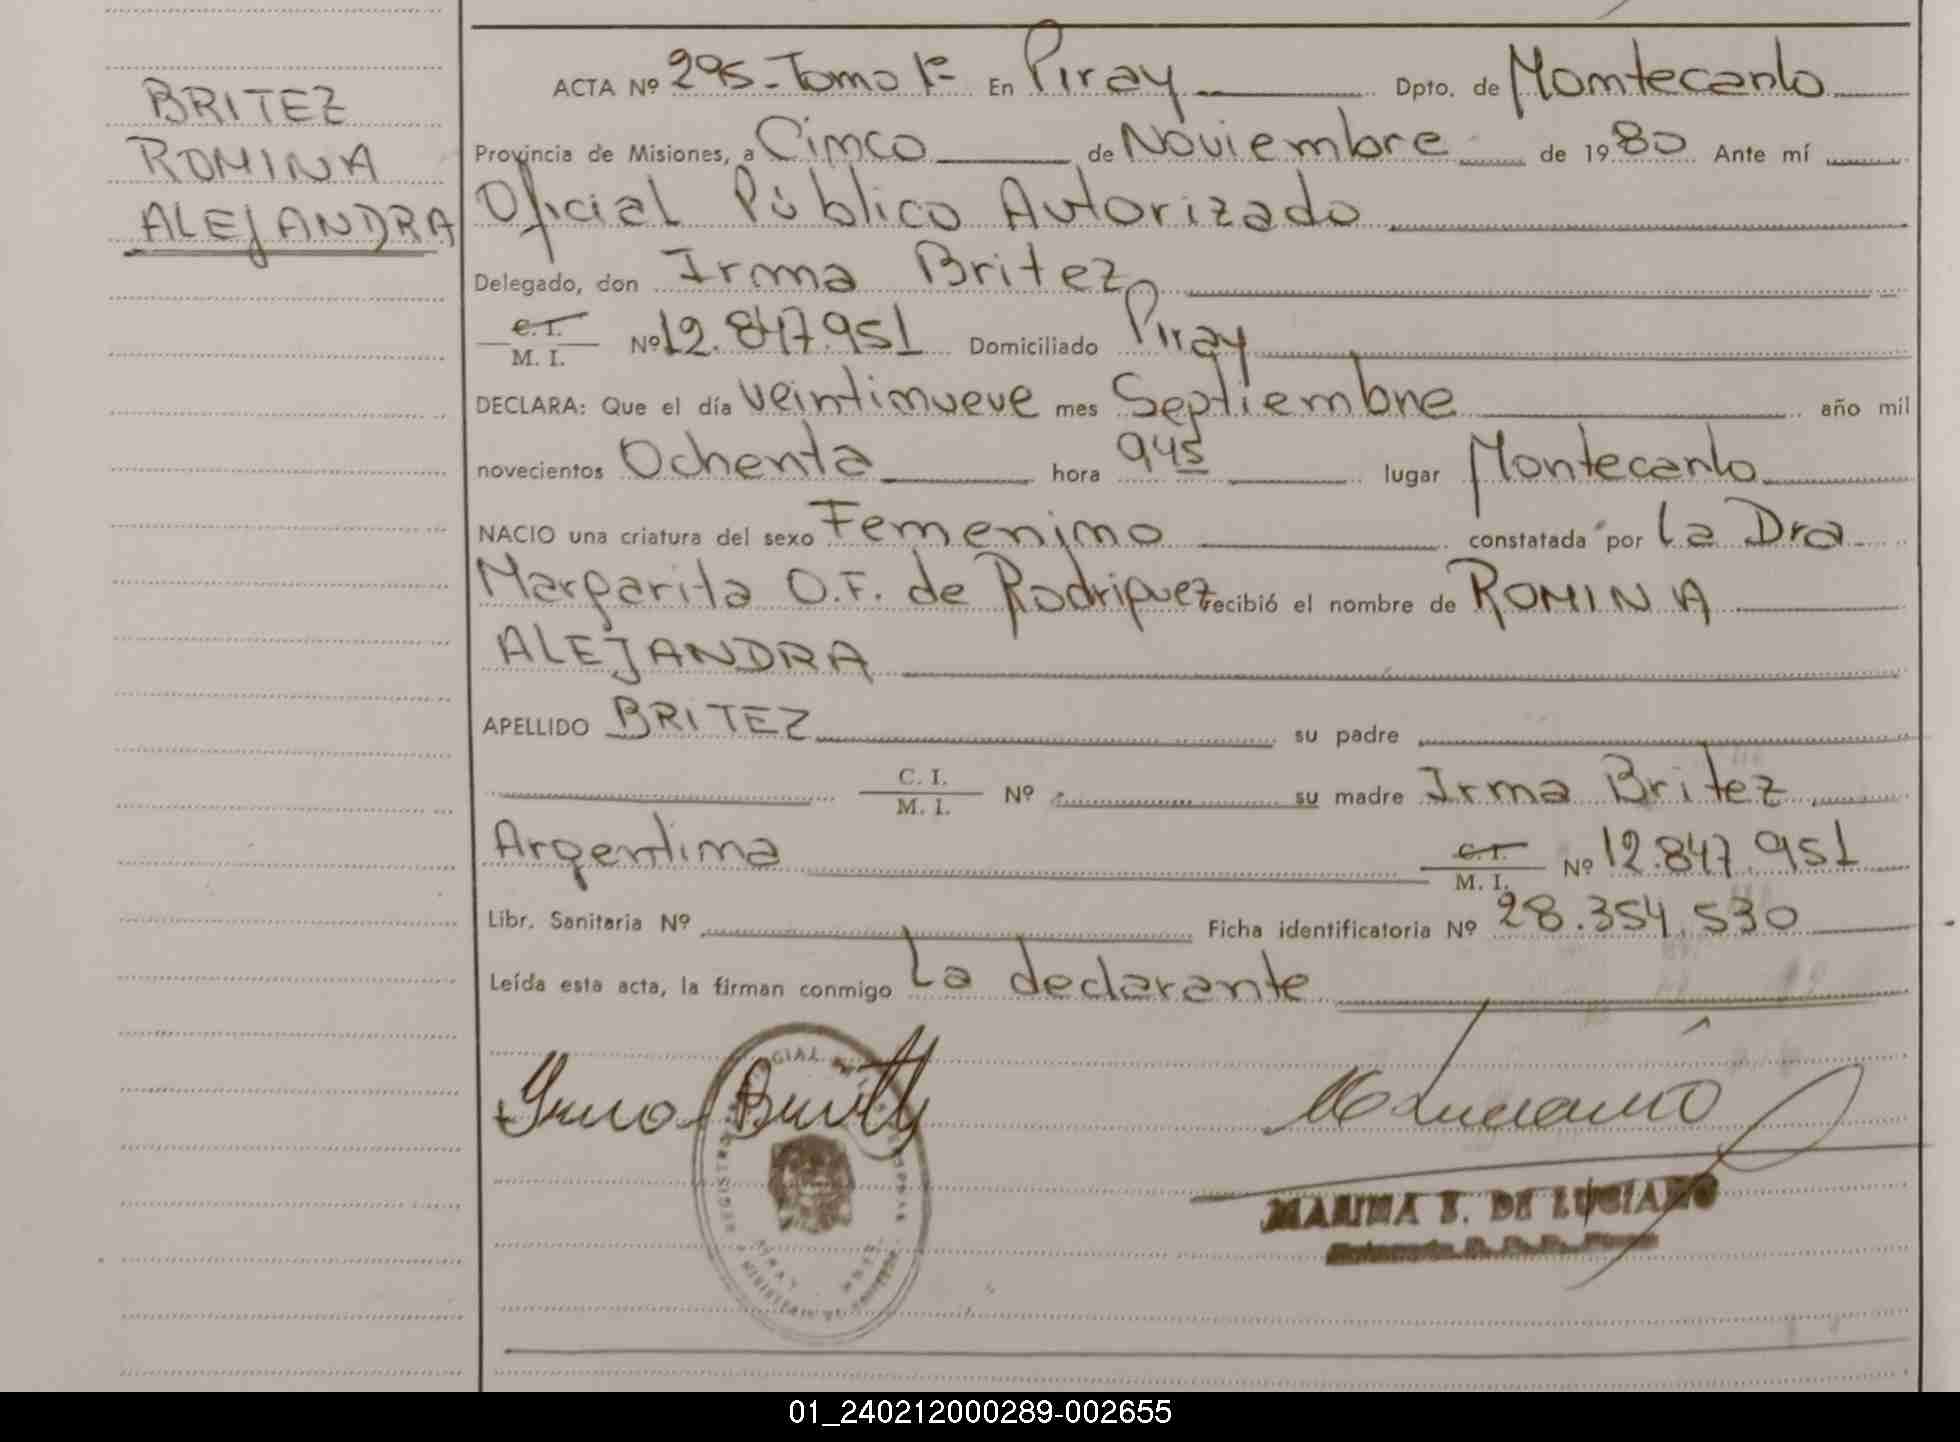 BRITEZ
ROMINA
ALEJANDRA
ACTA Nº 295 - Tomo 1º En Piray Dpto. de Montecarlo
Provincia de Misiones, a Cinco de Noviembre de 1980 Ante mí
Oficial Público Autorizado
Delegado, don Irma Britez
C. I.
M. I. Nº 12.847.951 Domiciliado Piray
DECLARA: Que el día veintinueve mes Septiembre año mil
novecientos Ochenta hora 945 lugar Montecarlo
NACIO una criatura del sexo Femenino constatada por la Dra
Margarita O.F. de Rodriguez recibió el nombre de ROMINA
ALEJANDRA
APELLIDO BRITEZ su padre
C. I.
M. I. Nº su madre Irma Britez
Argentina C. I.
M. I. Nº 12.847.951
Libr. Sanitaria Nº Ficha identificatoria Nº 28.354.530
Leída esta acta, la firman conmigo la declarante
MARINA DE LUCIANO
01_240212000289-002655